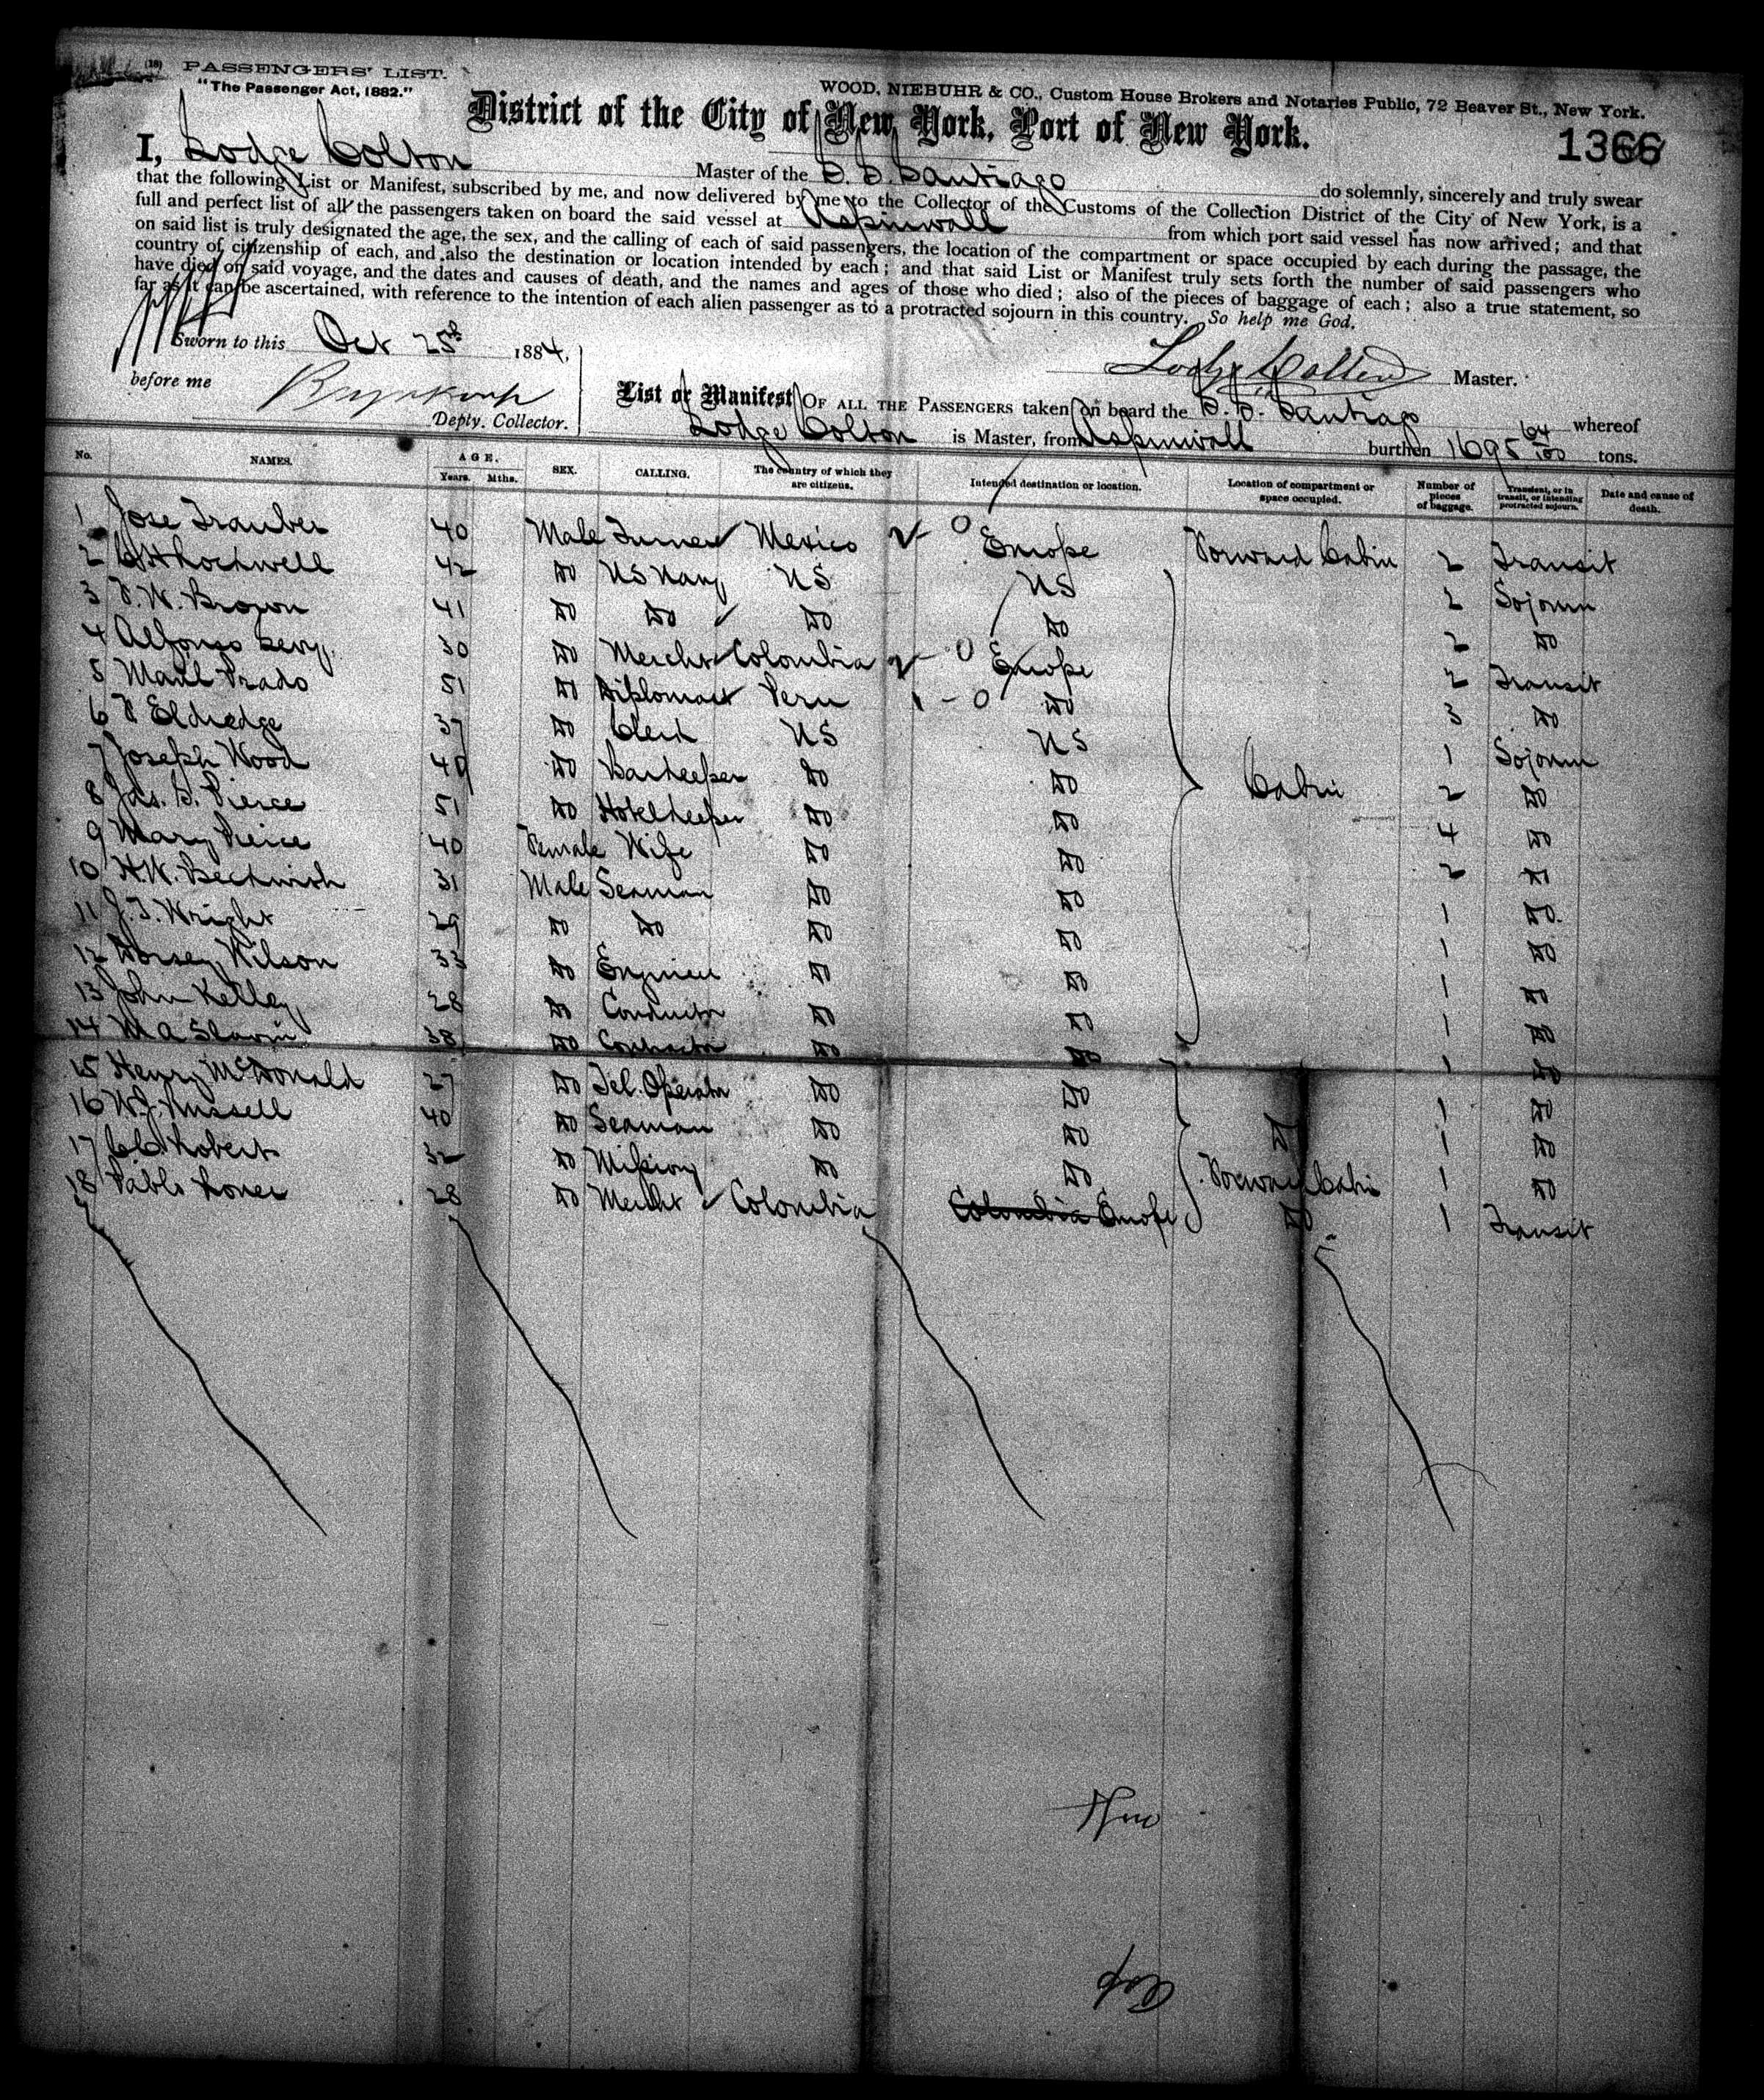 (18) PASSENGERS' LIST.
"The Passenger Act, 1882."
WOOD, NIEBUHR & CO., Custom House Brokers and Notaries Public, 72 Beaver St., New York.
District of the City of New York, Port of New York.
1366
I, Lodge Colton Master of the S. S. Santiago do solemnly, sincerely and truly swear
that the following List or Manifest, subscribed by me, and now delivered by me to the Collector of the Customs of the Collection District of the City of New York, is a
full and perfect list of all the passengers taken on board the said vessel at Aspinwall from which port said vessel has now arrived; and that
on said list is truly designated the age, the sex, and the calling of each of said passengers, the location of the compartment or space occupied by each during the passage, the
country of citizenship of each, and also the destination or location intended by each; and that said List or Manifest truly sets forth the number of said passengers who
have died on said voyage, and the dates and causes of death, and the names and ages of those who died; also of the pieces of baggage of each; also a true statement, so
far as it can be ascertained, with reference to the intention of each alien passenger as to a protracted sojourn in this country. So help me God.
Sworn to this Oct 25th 1884,
Lodge Colton Master.
before me
Deply. Collector.
List or Manifest OF ALL THE PASSENGERS taken on board the S. S. Santiago whereof
Lodge Colton is Master, from Aspinwall burthen 1695 64/100 tons.
No. NAMES. AGE. Years. Mths. SEX. CALLING. The country of which they are citizens. Intended destination or location. Location of compartment or space occupied. Number of pieces of baggage. Transient, or in transit, or intending protracted sojourn. Date and cause of death.
1 Jose Trauber 40 Male Turner Mexico Europe Forward Cabin 2 Transit
2 C H Rockwell 42 Do US Navy US US 2 Sojourn
3 F. W. Brown 41 Do Do Do Do 2 Do
4 Alfonso Levy 30 Do Mercht Colombia Europe 2 Transit
5 Manl Prado 51 Do Diplomat Peru Do 3 Do
6 F Eldredge 37 Do Clerk US US 1 Sojourn
7 Joseph Wood 49 Do Barkeeper Do Do Cabin 2 Do
8 Jas. S. Pierce 51 Do Hotelkeeper Do Do 4 Do
9 Mary Peirce 40 Female Wife Do Do 2 Do
10 H. W. Beckwish 31 Male Seaman Do Do 1 Do.
11 J. T. Wright 29 Do Do Do Do 1 Do
12 Dorsey Wilson 33 Do Engineer Do Do 1 Do
13 John Kelley 28 Do Conductor Do Do 1 Do
14 M A Slavin 38 Do Contractor Do Do 1 Do
15 Henry McDonald 27 Do Tel. Operator Do Do 1 Do
16 W. J. Russell 40 Do Seaman Do Do Do 1 Do
17 C C Robert 32 Do Do Do Forward Cabin 1 Do
18 Pablo 28 Do Mercht Colombia Colombia Europe Do 1 Transit